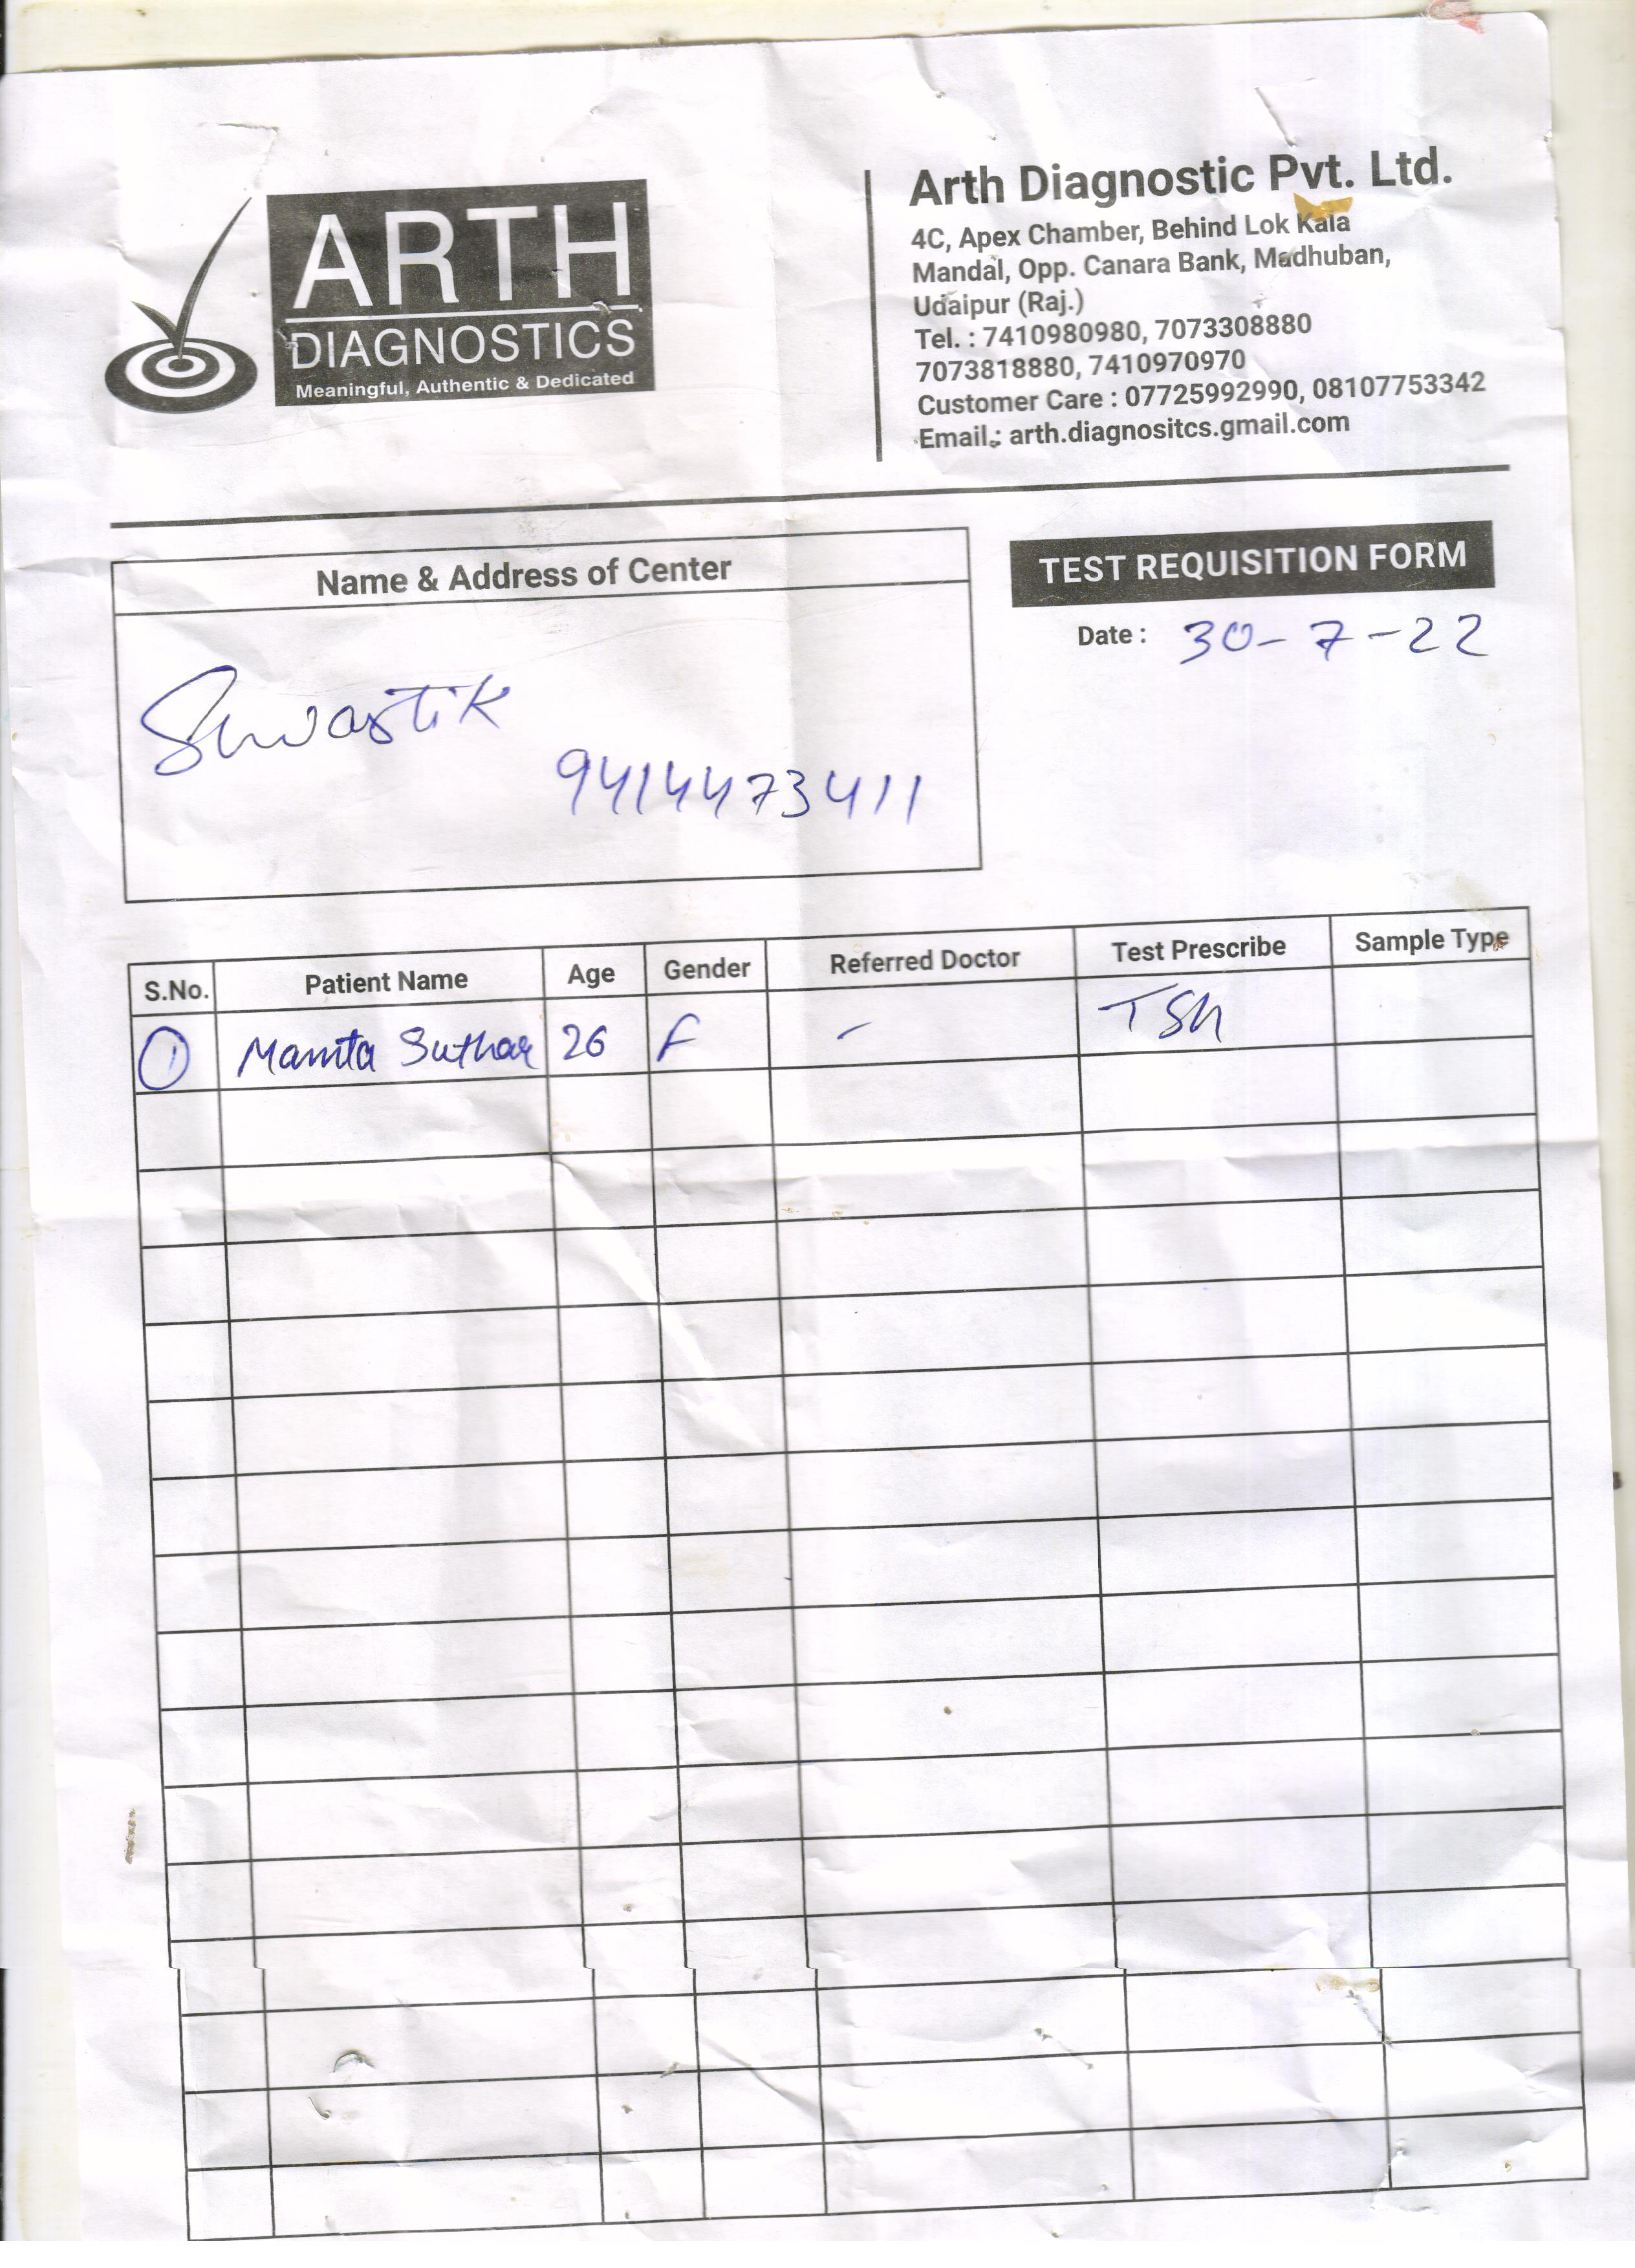 ARTH
DIAGNOSTICS
Meaningful, Authentic & Dedicated
Arth Diagnostic Pvt. Ltd.
4C, Apex Chamber, Behind Lok Kala
Mandal, Opp. Canara Bank, Madhuban,
Udaipur (Raj.)
Tel. : 7410980980, 7073308880
7073818880, 7410970970
Customer Care : 07725992990, 08107753342
Email : arth.diagnositcs.gmail.com
Name & Address of Center
Swastik
9414473411
TEST REQUISITION FORM
Date : 30-7-22
S.No. Patient Name Age Gender Referred Doctor Test Prescribe Sample Type
1 Mamta Suthar 26 F - TSH